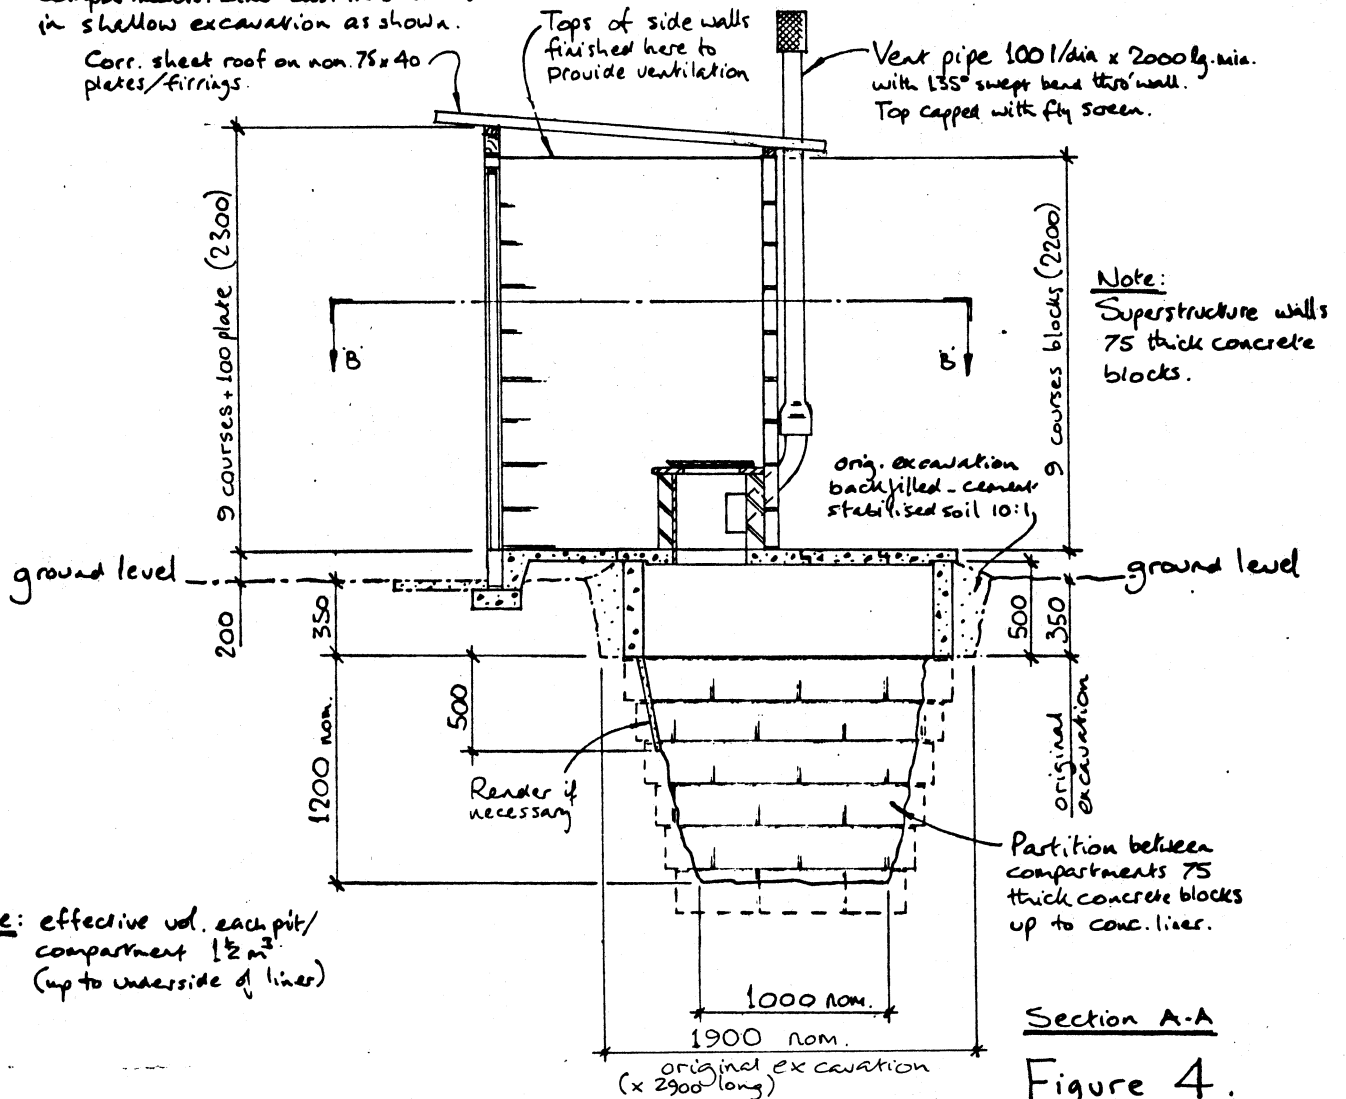 in shallow excavation as shown.
Corr. sheet roof on nom. 75x40
plates/firrings.
Tops of side walls
finished here to
provide ventilation
Vent pipe 100 I/dia x 2000 lg. min.
with 135° swept bend thro' wall.
Top capped with fly screen.
9 courses + 100 plate (2300)
'B'
'B'
9 courses blocks (2200)
Note:
Superstructure walls
75 thick concrete
blocks.
orig. excavation
backfilled - cement
stabilised soil 10:1
ground level
ground level
200
350
500
350
500
1200 nom.
original
excavation
Render if
necessary
Partition between
compartments 75
thick concrete blocks
up to conc. liner.
effective vol. each pit/
compartment 1½ m³
(up to underside of liner)
1000 nom.
1900 nom.
original excavation
(x 2900 long)
Section A-A
Figure 4.